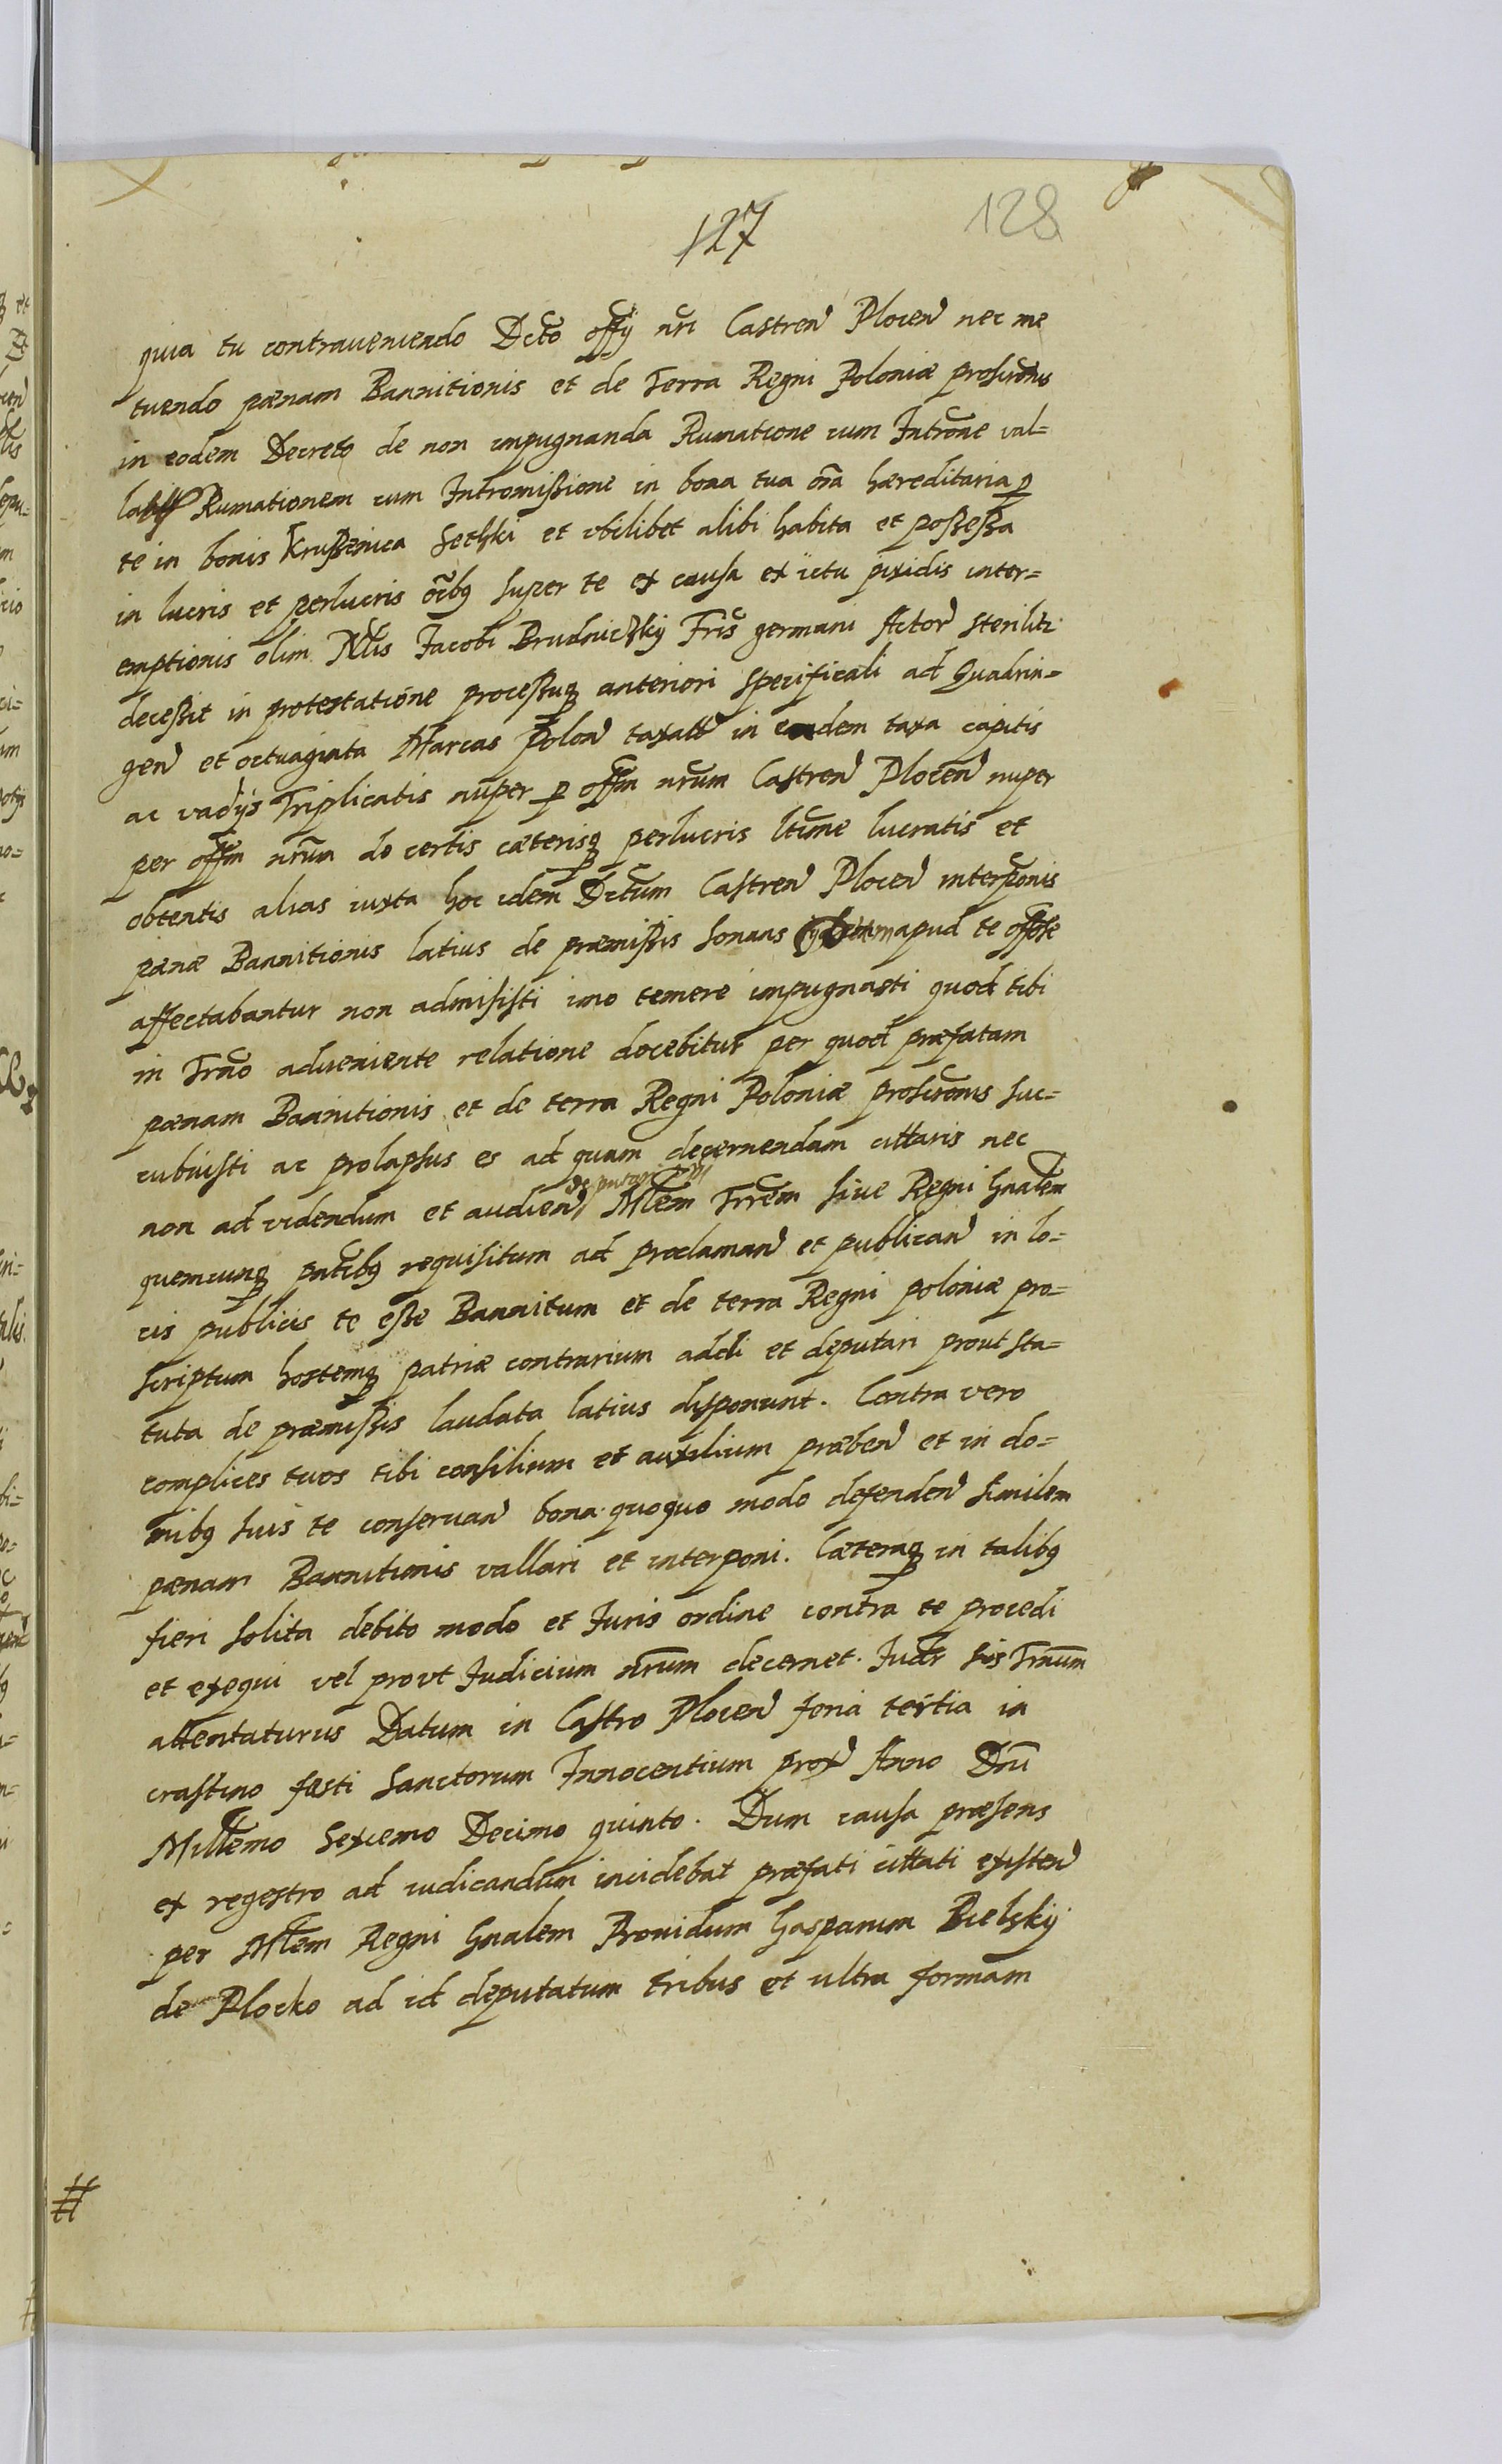 127
128
quia tu contraveniendo Dcto offij nri Castren Plocen nec me
tuendo pænam Bannitionis et de Terra Regni Poloniæ proscronis
in eodem Decreto de non impugnanda Rumatione cum Introne val=
Rumationem cum Intromißione in bona tua oña hæreditaria p
te in bonis Krußenica Sethki et ubilibet alibi habita et poßeßa
in lucris et perlucris oibg super te ex causa ex ictu pixidis inter=
emptionis olim Nlis Jacobi Brudnicżky Fris germani Actor sterilitr
deceßit in protestatione proceßuq anteriori specificali ad Quadrin=
gen et octuaginta Marcas Polon taxatt in eadem taxa capitis
ac vadijs Triplicatis nuper p offm nrum Castren Plocen nuper
per offm nrum de certis cæterisq perlucris ltime lucratis et
obtentis alias iuxta hoc idem Dctum Castren Plocen interponis
pænæ Bannitionis latius de præmißis sonans apud te offose
affectabantur non admisisti imo temere impugnasti quod tibi
in Trno adveniente relatione docebitur per quod præfatam
pænam Bannitionis et de terra Regni Poloniæ proscronis suc=
cubuisti ac prolapsus es ad quam decernendam cittaris nec
non ad videndum et audien Mlem Trrem sive Regni Gnalem
quemcunq patibg requisitum ad proclaman et publican in lo=
cis publicis te eße Bannitum et de terra Regni poloniæ pro=
scriptum hostemq patriæ contrarium addi et deputari prout sta=
tuta de præmißis laudata latius disponunt. Contra vero
complices tuos tibi consilium et auxilium præben et in do=
mibg suis te conservan bona quoquo modo defenden similem
pænam Bannitionis vallari et interponi. Cæteraq in talibg
fieri solita debito modo et Juris ordine contra te procedi
et exequi vel prout Judicium nrum decernet. Judr sis Trnum
attentaturus Datum in Castro Plocen feria tertia in
crastino festi Sanctorum Innocentium prox Anno Dni
Millemo Sexcemo Decimo quinto. Dum causa præsens
ex regestro ad iudicandum incidebat præfati cittati existen
per Mlem Regni Gnalem Providum Gasparum Bielsky
de Plocko ad id deputatum tribus et ultra formam
#